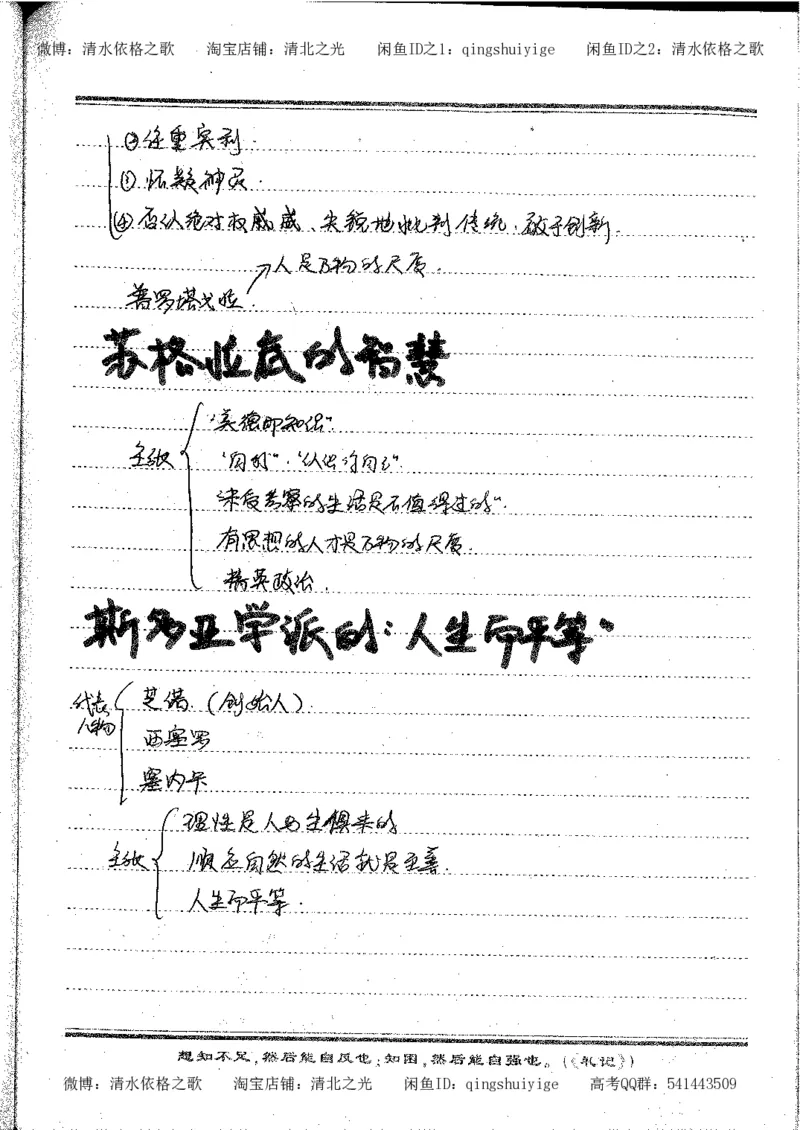 微博：清水依格之歌 淘宝店铺：清北之光 闲鱼ID之1：qingshuiyige 闲鱼ID之2：清水依格之歌
②注重实利.
① 怀疑神灵.
④否认绝对权威、尖锐地批判传统、敢于创新.
人是万物的尺度.
普罗塔戈拉.
苏格拉底的智慧
"美德即知识"
主张
"认识你自己".
未经考察的生活是不值得过的".
有思想的人才是万物的尺度.
精英政治.
斯多亚学派的："人生而平等"
代表 芝诺.（创始人）.
人物
西塞罗
塞内卡
理性是人与生俱来的
主张 顺应自然的生活就是至善.
人生而平等.
想知不足，然后能自反也；知困，然后能自强也。（《礼记》）
微博：清水依格之歌 淘宝店铺：清北之光 闲鱼ID：qingshuiyige 高考QQ群：541443509